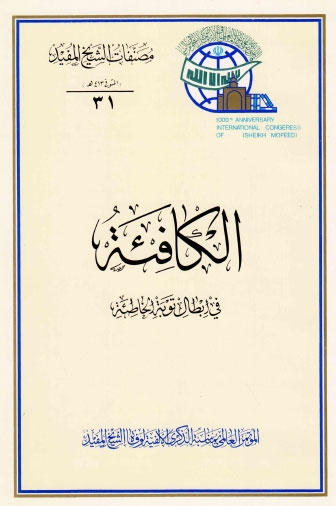 مصنفات الشيخ المفيد
(المتوفى ٤١٣ هـ)
٣١
1000th ANNIVERSARY
INTERNATIONAL CONGERESS
OF SHEIKH MOFEED
الكافِئَةُ
في إبطال توبة الخاطئة
المؤتمر العالمي بمناسبة الذكرى الألفية لوفاة الشيخ المفيد